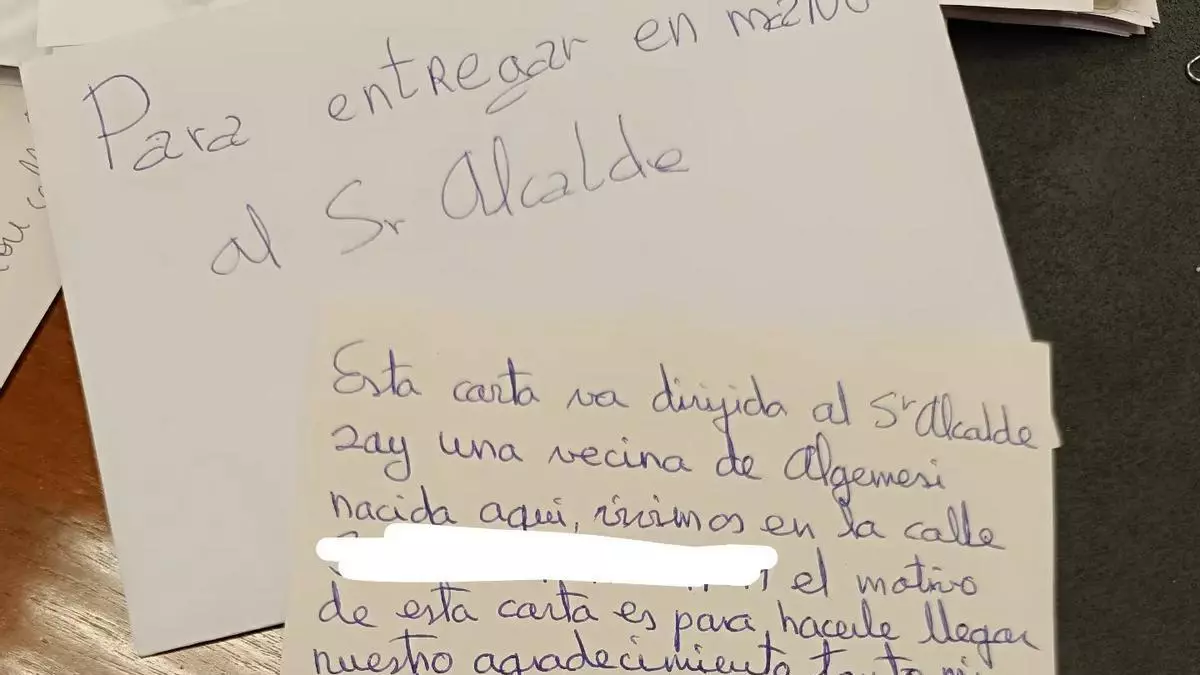 Para entregar en mano
al Sr Alcalde
Esta carta va dirijida al Sr Alcalde
zay una vecina de Algemesi
nacida aqui, vivimos en la calle
el motivo
de esta carta es para hacerle llegar
nuestro agradecimiento tanto mi